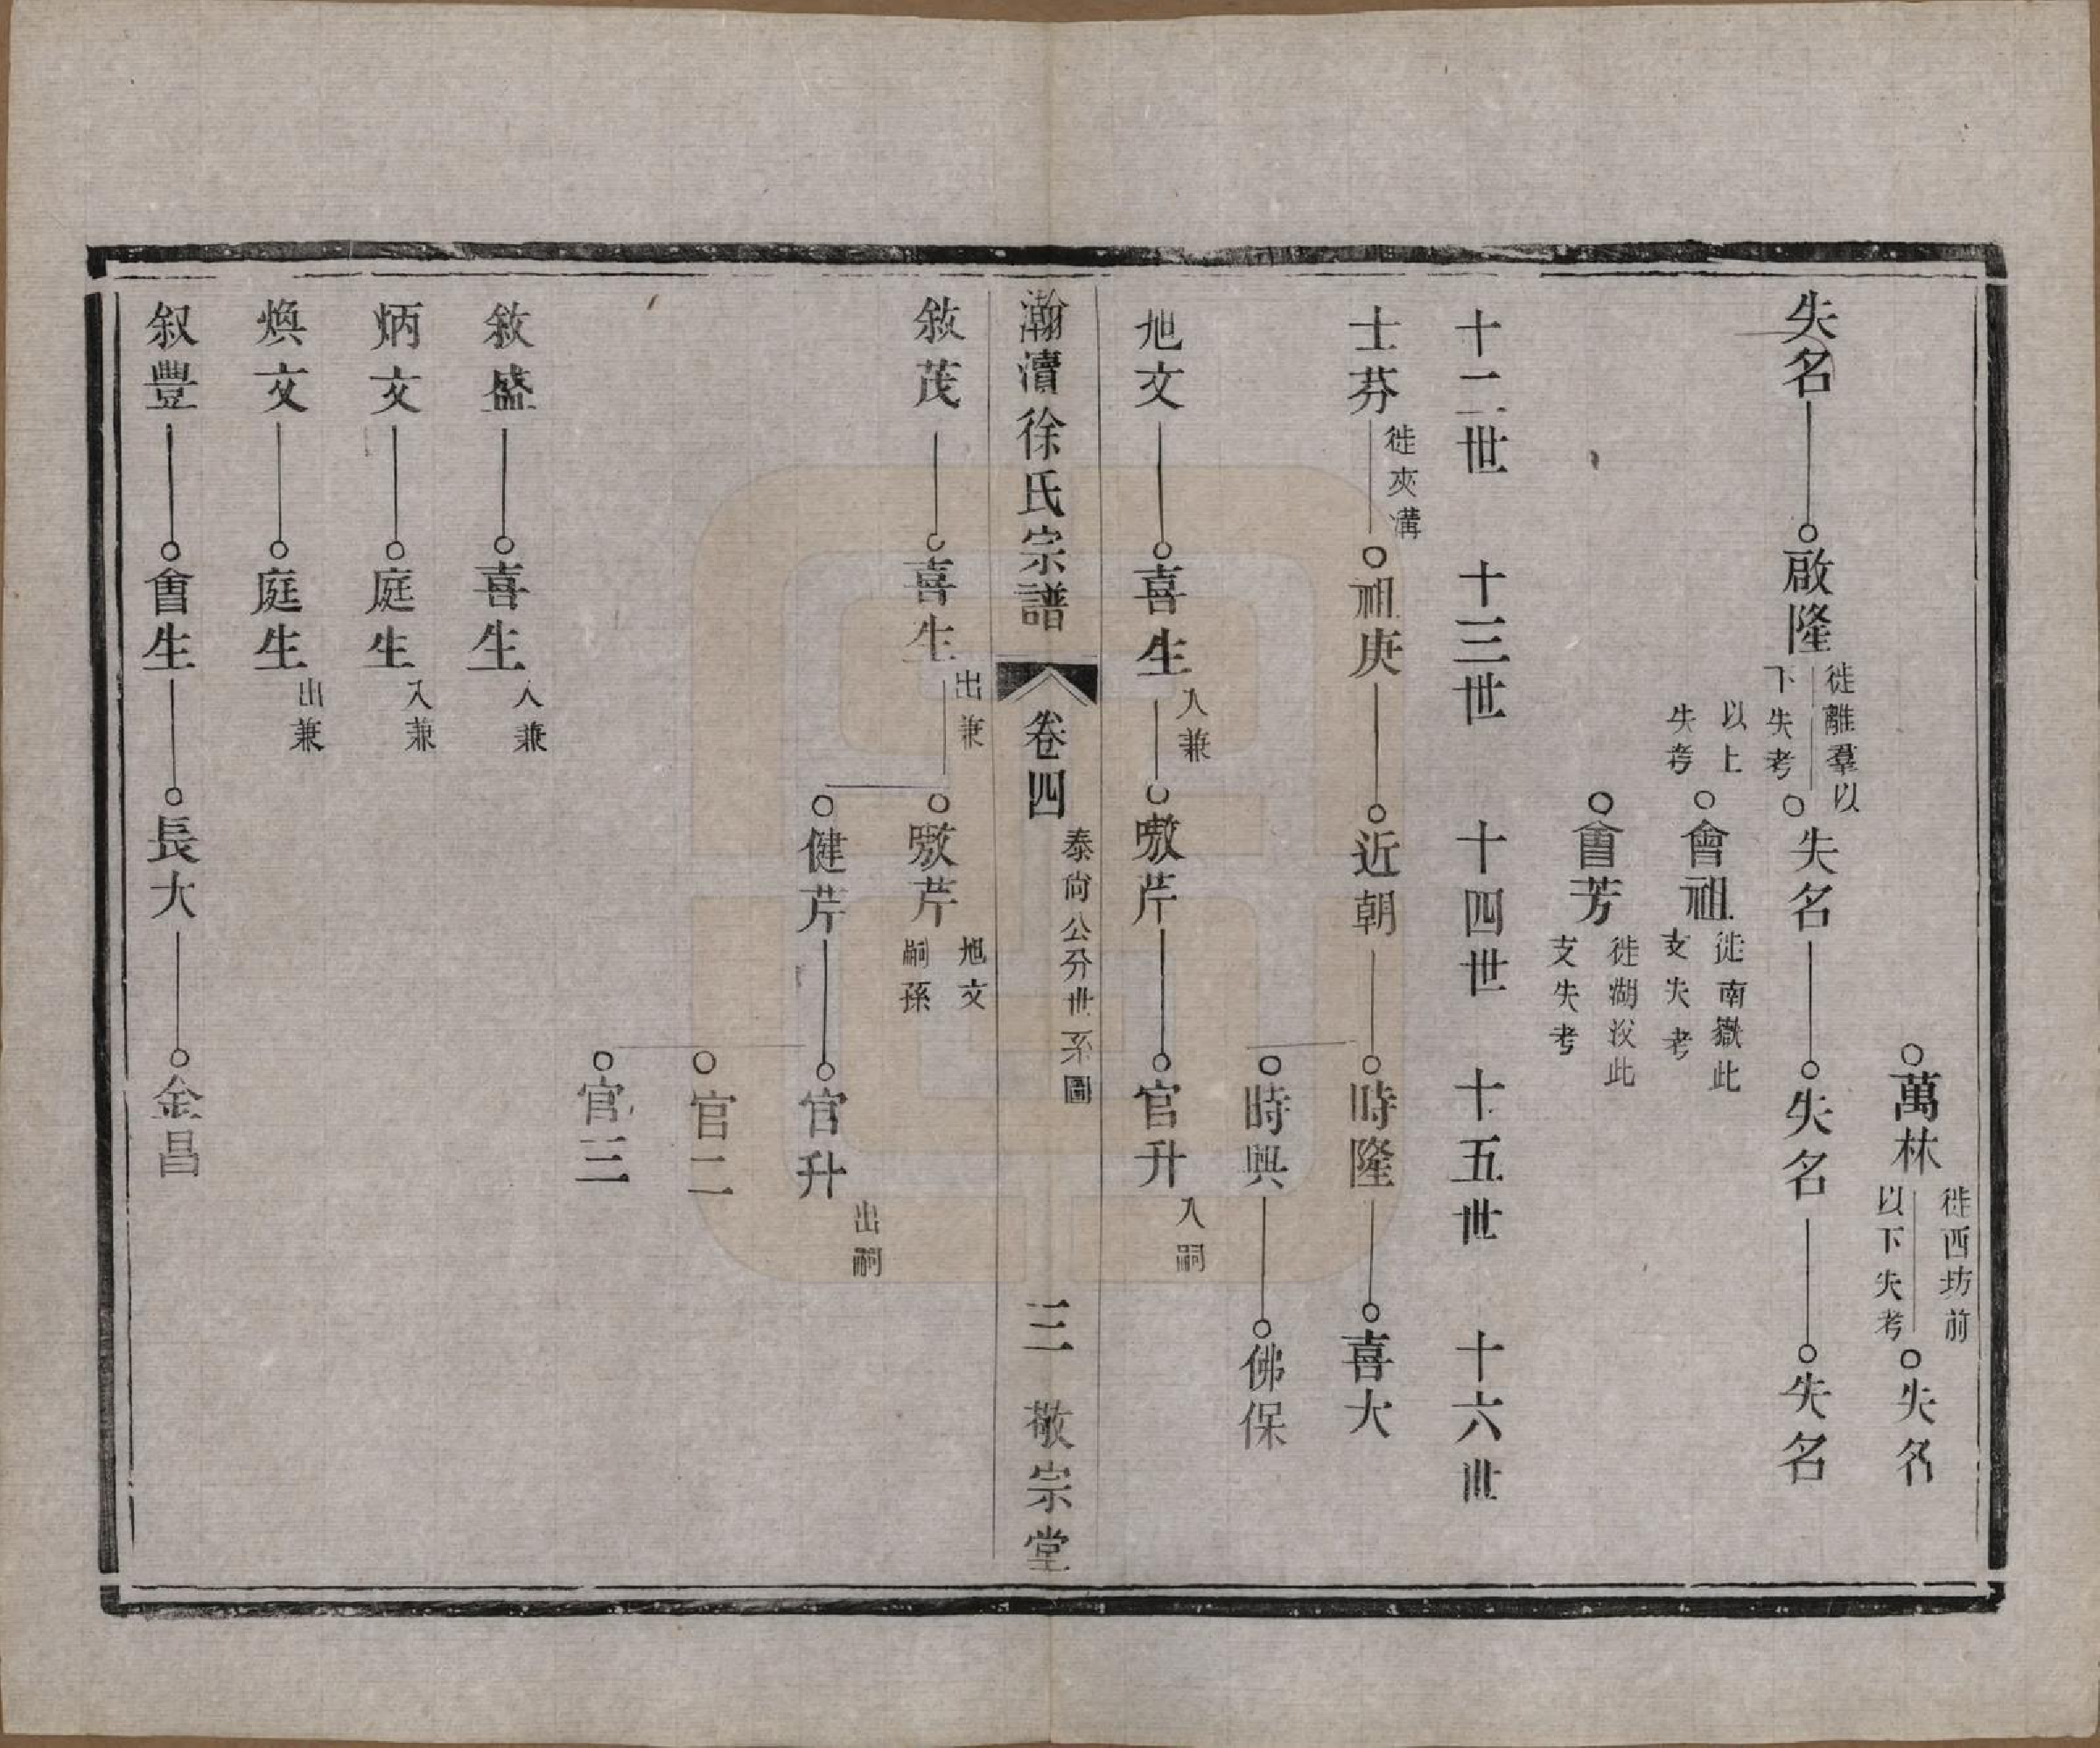 萬林 徙西坊前以下失考 失名
失名 啟隆 徙離羣以下失考 失名 失名 失名
以上失考 會祖 徙南嶽此支失考
會芳 徙湖㳇此支失考
十二世 十三世 十四世 十五世 十六世
士芬 徙夾溝 祖庚 近朝 時隆 喜大
時興 佛保
旭文 喜生 入兼 嗷芹 官升 入嗣
瀚瀆徐氏宗譜 卷四 泰尙公分世系圖 三 敬宗堂
敘茂 喜生 出兼 嗷芹 旭文嗣孫
健芹 官升 出嗣
官二
官三
敘盛 喜生 入兼
炳文 庭生 入兼
煥文 庭生 出兼
叙豐 會生 長大 金昌